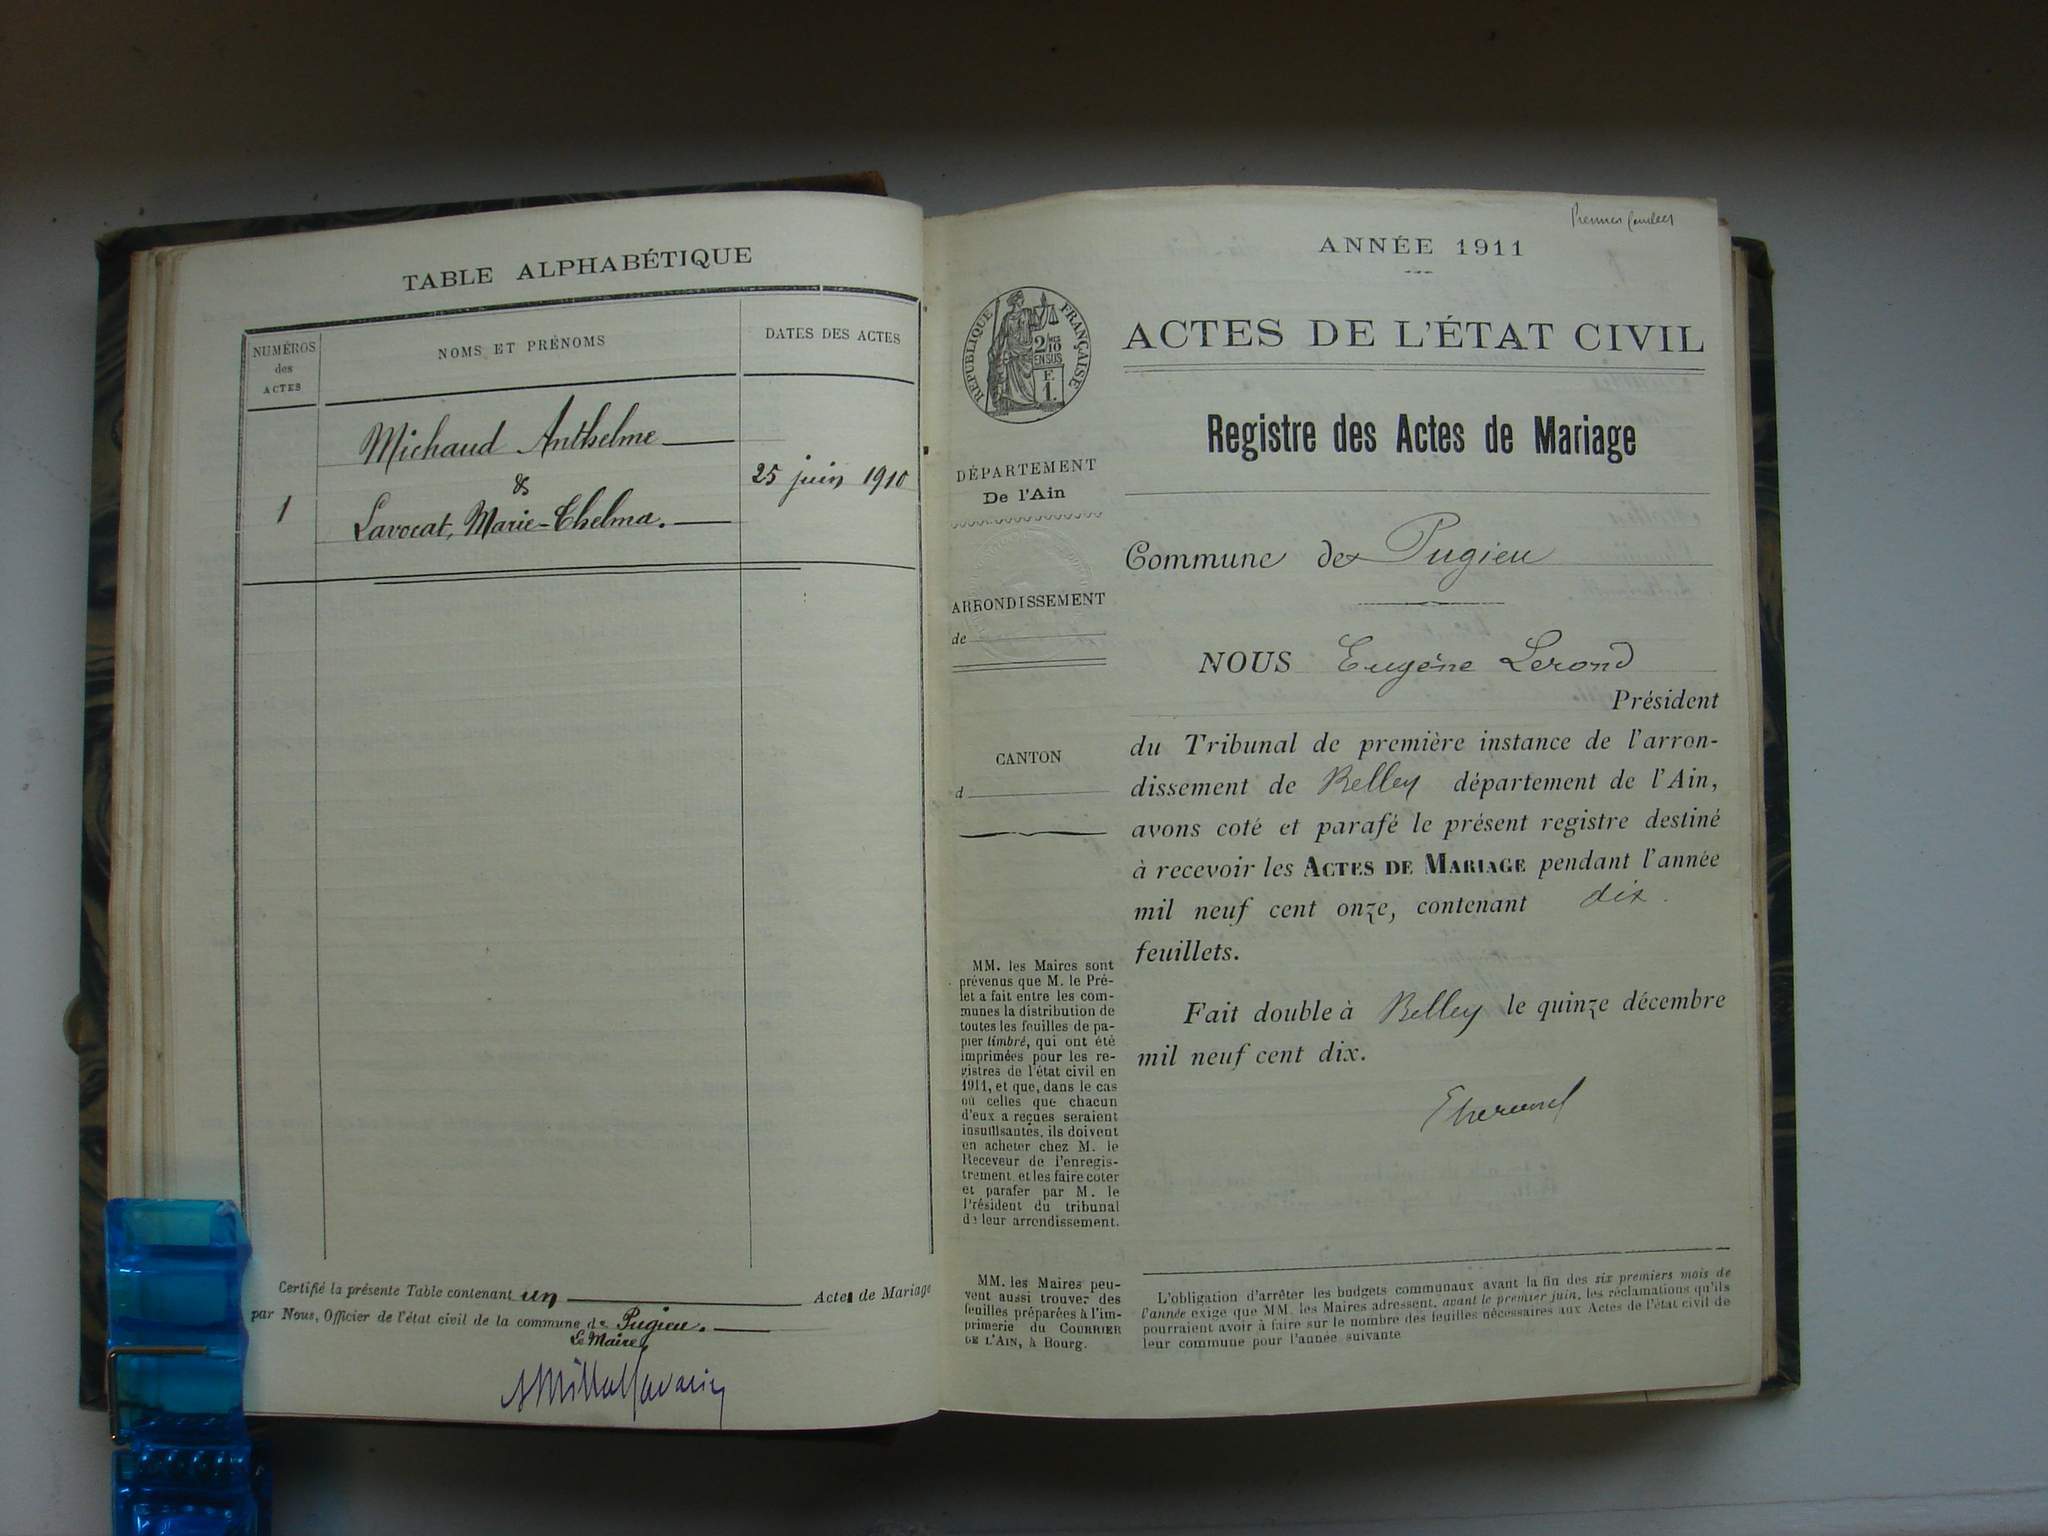 TABLE ALPHABÉTIQUE
NUMÉROS
des
ACTES
NOMS ET PRÉNOMS
DATES DES ACTES
Michaud Anthelme
&
1
Lavocat, Marie-Thelma.
25 juin 1910
Certifié la présente Table contenant un Acte de Mariage
par Nous, Officier de l'état civil de la commune de Pugieu.
Le Maire
Premier feuillet
ANNÉE 1911
RÉPUBLIQUE FRANÇAISE
2/10
EN SUS
F.
1.
ACTES DE L'ÉTAT CIVIL
Registre des Actes de Mariage
DÉPARTEMENT
De l'Ain
ARRONDISSEMENT
de
CANTON
d
Commune de Pugieu
NOUS Eugène Lerond
Président
du Tribunal de première instance de l'arron-
dissement de Belley département de l'Ain,
avons coté et parafé le présent registre destiné
à recevoir les ACTES DE MARIAGE pendant l'année
mil neuf cent onze, contenant dix.
feuillets.
Fait double à Belley le quinze décembre
mil neuf cent dix.
MM. les Maires sont
prévenus que M. le Pré-
fet a fait entre les com-
munes la distribution de
toutes les feuilles de pa-
pier timbré, qui ont été
imprimées pour les re-
gistres de l'état civil en
1911, et que, dans le cas
où celles que chacun
d'eux a reçues seraient
insuffisantes, ils doivent
en acheter chez M. le
Receveur de l'enregis-
trement et les faire coter
et parafer par M. le
Président du tribunal
de leur arrondissement.
MM. les Maires peu-
vent aussi trouver des
feuilles préparées à l'im-
primerie du COURRIER
DE L'AIN, à Bourg.
L'obligation d'arrêter les budgets communaux avant la fin des six premiers mois de
l'année exige que MM. les Maires adressent, avant le premier juin, les réclamations qu'ils
pourraient avoir à faire sur le nombre des feuilles nécessaires aux Actes de l'état civil de
leur commune pour l'année suivante